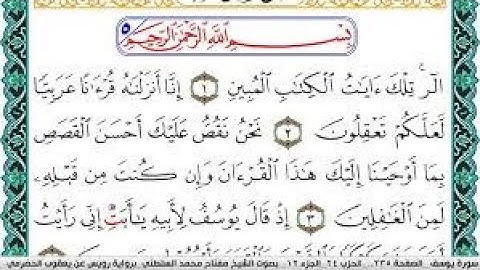 بِسْمِ ٱللَّهِ ٱلرَّحْمَٰنِ ٱلرَّحِيمِ
الٓر ۚ تِلْكَ ءَايَٰتُ ٱلْكِتَٰبِ ٱلْمُبِينِ ١ إِنَّآ أَنزَلْنَٰهُ قُرْءَٰنًا عَرَبِيًّا
لَّعَلَّكُمْ تَعْقِلُونَ ٢ نَحْنُ نَقُصُّ عَلَيْكَ أَحْسَنَ ٱلْقَصَصِ
بِمَآ أَوْحَيْنَآ إِلَيْكَ هَٰذَا ٱلْقُرْءَانَ وَإِن كُنتَ مِن قَبْلِهِۦ
لَمِنَ ٱلْغَٰفِلِينَ ٣ إِذْ قَالَ يُوسُفُ لِأَبِيهِ يَٰٓأَبَتِ إِنِّي رَأَيْتُ
سورة يوسف الصفحة ٢٣٥ الحزب ٢٤ الجزء ١٢ بصوت الشيخ مفتاح محمد السلطني برواية رويس عن يعقوب الحضرمي